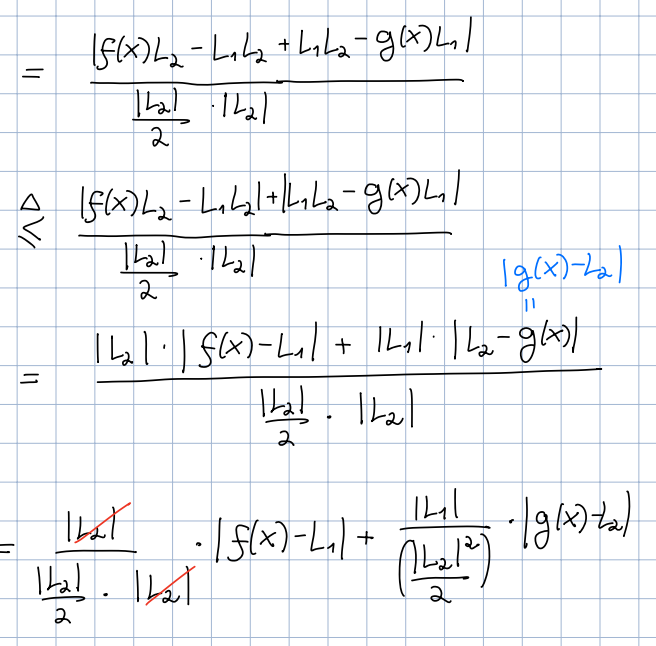 = |f(x)L₂ - L₁L₂ + L₁L₂ - g(x)L₁| / (|L₂|/2 · |L₂|)
≤ (Δ) (|f(x)L₂ - L₁L₂| + |L₁L₂ - g(x)L₁|) / (|L₂|/2 · |L₂|)
|g(x) - L₂|
=
= (|L₂| · |f(x) - L₁| + |L₁| · |L₂ - g(x)|) / (|L₂|/2 · |L₂|)
= |L₂| / (|L₂|/2 · |L₂|) · |f(x) - L₁| + |L₁| / (|L₂|²/2) · |g(x) - L₂|